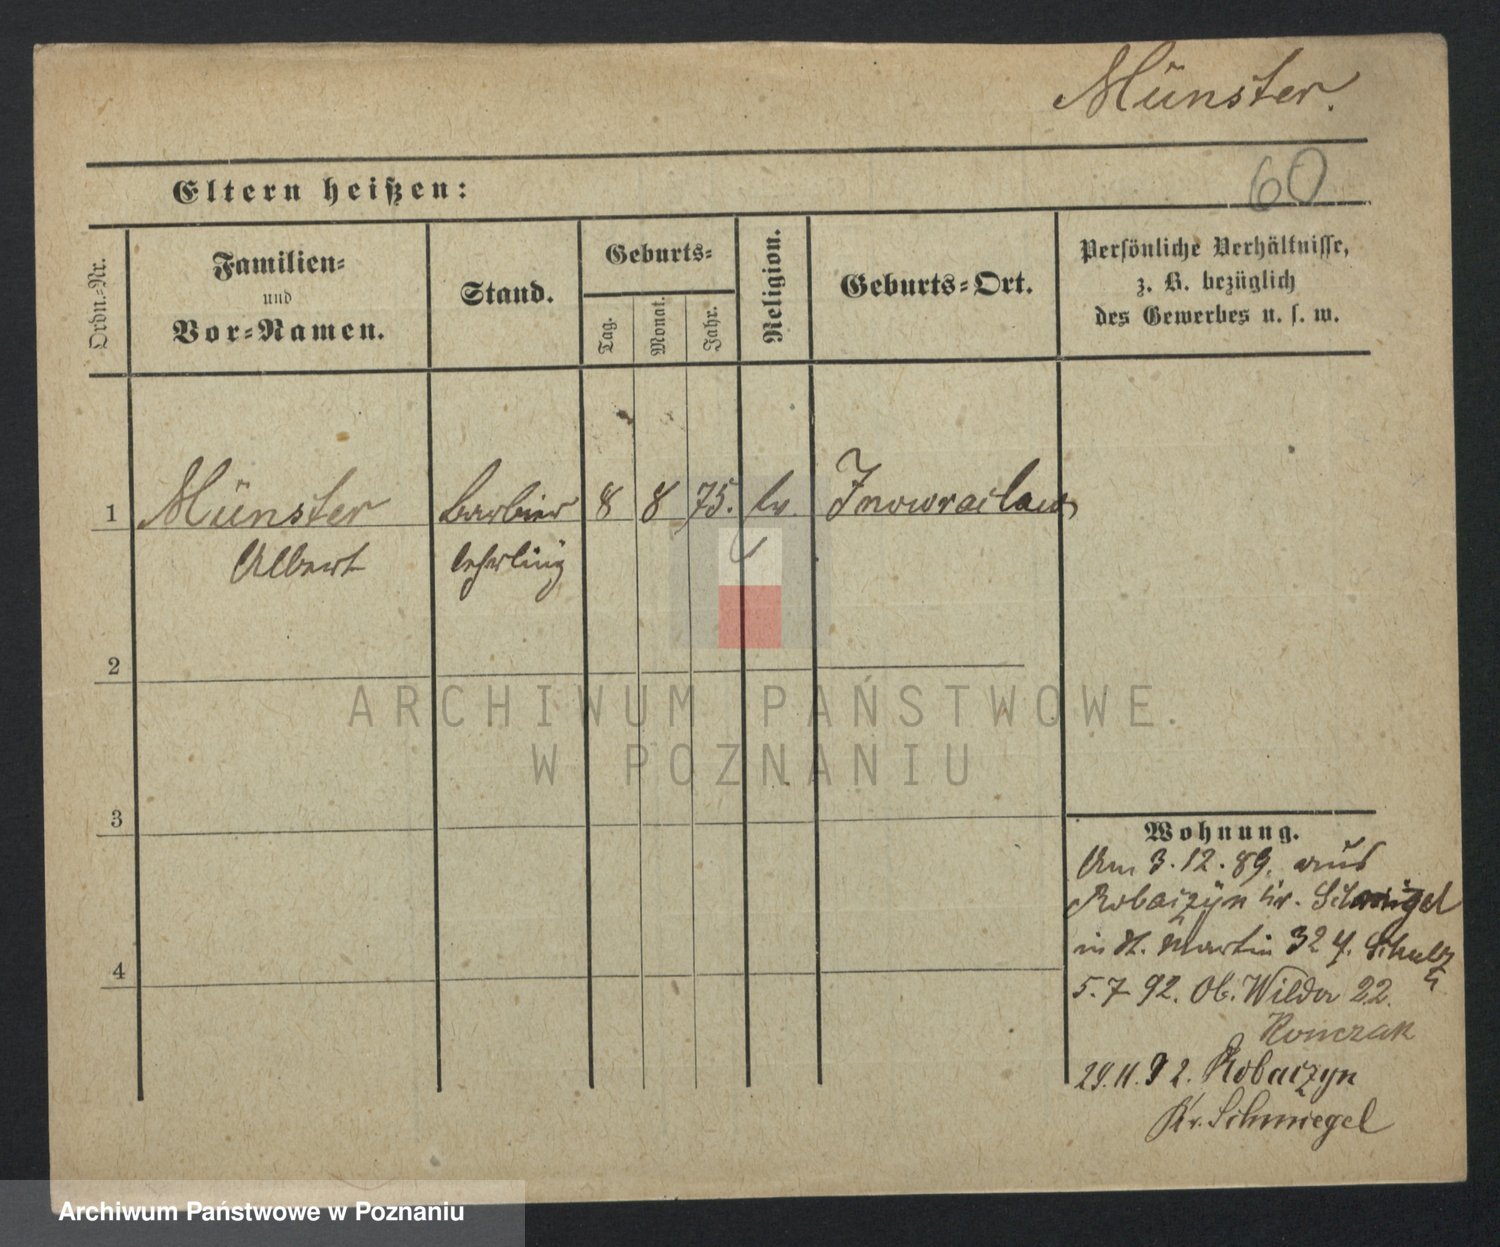 Münster.
60
Eltern heißen:
Ordn.-Nr.
Familien-
und
Vor-Namen.
Stand.
Geburts-
Tag.
Monat.
Jahr.
Religion.
Geburts-Ort.
Persönliche Verhältnisse,
z. B. bezüglich
des Gewerbes u. s. w.
1 Münster Barbier 8 8 75. ev. Inowraclaw
Albert lehrling
2
3
4
Wohnung.
Am 3.12.89. aus
Robaczyn Kr. Schmigel
in St. Martin 32 Schulz
5.7.92. Ob. Wilda 22.
Ronczak
29.11.92. Robaczyn
Kr. Schmiegel
ARCHIWUM PAŃSTWOWE
W POZNANIU
Archiwum Państwowe w Poznaniu